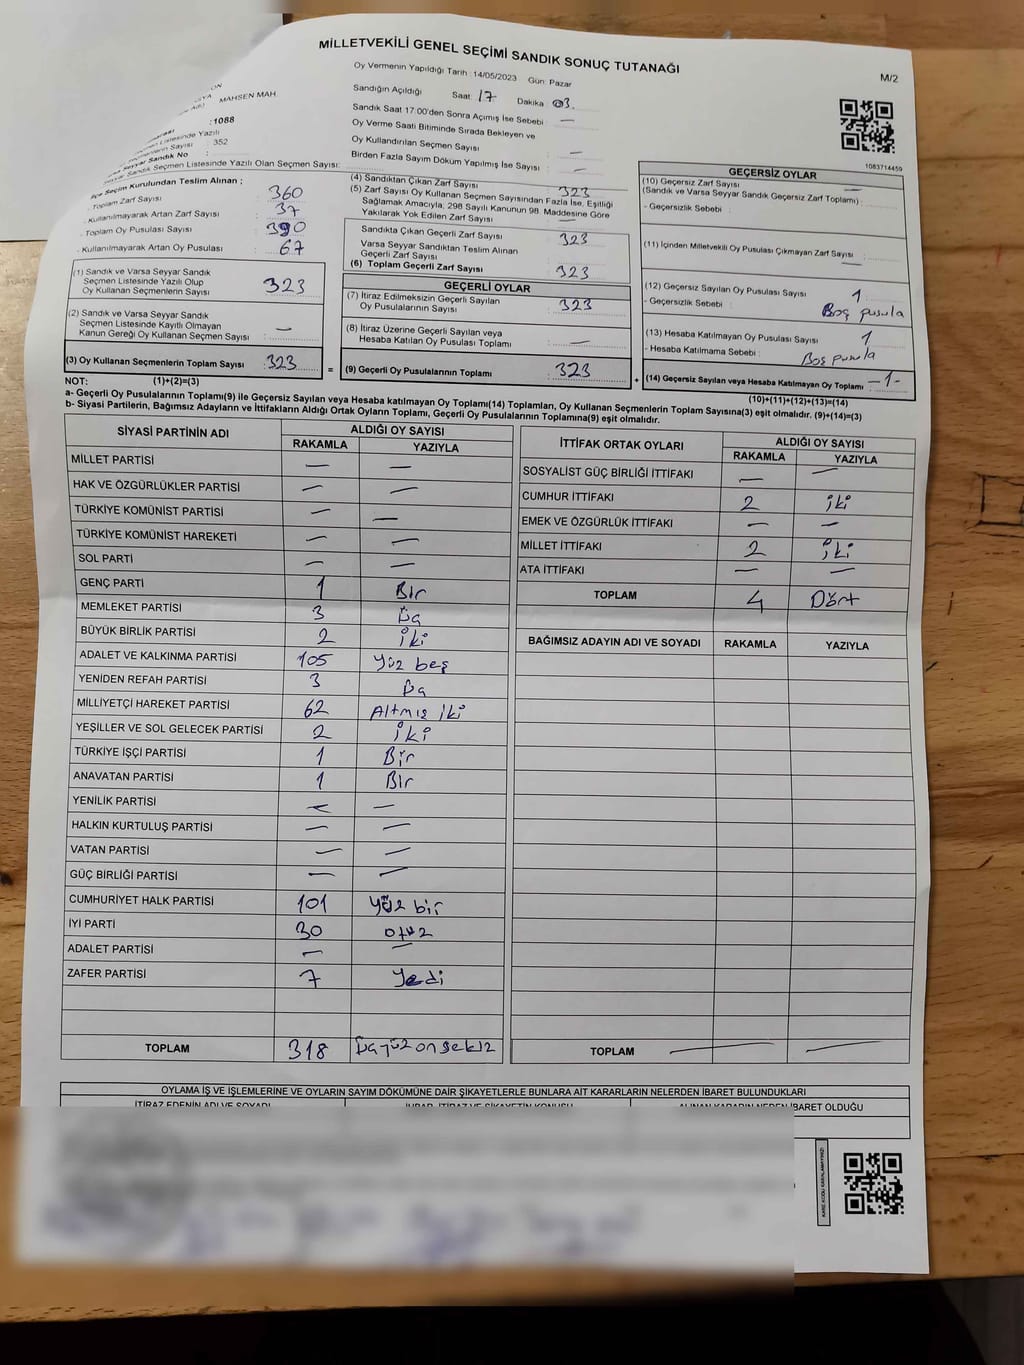 MİLLETVEKİLİ GENEL SEÇİMİ SANDIK SONUÇ TUTANAĞI
M/2
Oy Vermenin Yapıldığı Tarih : 14/05/2023 Gün: Pazar
Sandığın Açıldığı Saat: 17 Dakika 03.
Sandık Saat 17:00'den Sonra Açımış İse Sebebi : —
Oy Verme Saati Bitiminde Sırada Bekleyen ve
Oy Kullandırılan Seçmen Sayısı : —
Birden Fazla Sayım Döküm Yapılmış İse Sayısı : —
MAHSEN MAH.
:1088
Seçmen Listesinde Yazılı
Seçmenlerin Sayısı : 352
Seyyar Sandık No :
Seyyar Sandık Seçmen Listesinde Yazılı Olan Seçmen Sayısı:
İlçe Seçim Kurulundan Teslim Alınan ;
- Toplam Zarf Sayısı : 360
- Kullanılmayarak Artan Zarf Sayısı : 37
- Toplam Oy Pusulası Sayısı : 390
- Kullanılmayarak Artan Oy Pusulası : 67
(1) Sandık ve Varsa Seyyar Sandık
Seçmen Listesinde Yazılı Olup
Oy Kullanan Seçmenlerin Sayısı : 323
(2) Sandık ve Varsa Seyyar Sandık
Seçmen Listesinde Kayıtlı Olmayan
Kanun Gereği Oy Kullanan Seçmen Sayısı : —
(3) Oy Kullanan Seçmenlerin Toplam Sayısı : 323
(4) Sandıktan Çıkan Zarf Sayısı : 323
(5) Zarf Sayısı Oy Kullanan Seçmen Sayısından Fazla İse, Eşitliği
Sağlamak Amacıyla, 298 Sayılı Kanunun 98. Maddesine Göre
Yakılarak Yok Edilen Zarf Sayısı : —
Sandıkta Çıkan Geçerli Zarf Sayısı : 323
Varsa Seyyar Sandıktan Teslim Alınan
Geçerli Zarf Sayısı :
(6) Toplam Geçerli Zarf Sayısı : 323
GEÇERLİ OYLAR
(7) İtiraz Edilmeksizin Geçerli Sayılan
Oy Pusulalarının Sayısı : 323
(8) İtiraz Üzerine Geçerli Sayılan veya
Hesaba Katılan Oy Pusulası Toplamı : —
= (9) Geçerli Oy Pusulalarının Toplamı : 323
1083714459
GEÇERSİZ OYLAR
(10) Geçersiz Zarf Sayısı
(Sandık ve Varsa Seyyar Sandık Geçersiz Zarf Toplamı) : —
- Geçersizlik Sebebi :
(11) İçinden Milletvekili Oy Pusulası Çıkmayan Zarf Sayısı : —
(12) Geçersiz Sayılan Oy Pusulası Sayısı : 1
- Geçersizlik Sebebi : Boş pusula
(13) Hesaba Katılmayan Oy Pusulası Sayısı : 1
- Hesaba Katılmama Sebebi : Boş pusula
+ (14) Geçersiz Sayılan veya Hesaba Katılmayan Oy Toplamı : -1-
NOT: (1)+(2)=(3)
(10)+(11)+(12)+(13)=(14)
a- Geçerli Oy Pusulalarının Toplamı(9) ile Geçersiz Sayılan veya Hesaba katılmayan Oy Toplamı(14) Toplamları, Oy Kullanan Seçmenlerin Toplam Sayısına(3) eşit olmalıdır. (9)+(14)=(3)
b- Siyasi Partilerin, Bağımsız Adayların ve İttifakların Aldığı Ortak Oyların Toplamı, Geçerli Oy Pusulalarının Toplamına(9) eşit olmalıdır.
SİYASİ PARTİNİN ADI ALDIĞI OY SAYISI
RAKAMLA YAZIYLA
MİLLET PARTİSİ — —
HAK VE ÖZGÜRLÜKLER PARTİSİ — —
TÜRKİYE KOMÜNİST PARTİSİ — —
TÜRKİYE KOMÜNİST HAREKETİ — —
SOL PARTİ — —
GENÇ PARTİ 1 Bir
MEMLEKET PARTİSİ 3 Üç
BÜYÜK BİRLİK PARTİSİ 2 iki
ADALET VE KALKINMA PARTİSİ 105 Yüz beş
YENİDEN REFAH PARTİSİ 3 Üç
MİLLİYETÇİ HAREKET PARTİSİ 62 Altmış iki
YEŞİLLER VE SOL GELECEK PARTİSİ 2 iki
TÜRKİYE İŞÇİ PARTİSİ 1 Bir
ANAVATAN PARTİSİ 1 Bir
YENİLİK PARTİSİ — —
HALKIN KURTULUŞ PARTİSİ — —
VATAN PARTİSİ — —
GÜÇ BİRLİĞİ PARTİSİ — —
CUMHURİYET HALK PARTİSİ 101 Yüz bir
İYİ PARTİ 30 otuz
ADALET PARTİSİ — —
ZAFER PARTİSİ 7 Yedi
TOPLAM 318 Üçyüz onsekiz
İTTİFAK ORTAK OYLARI ALDIĞI OY SAYISI
RAKAMLA YAZIYLA
SOSYALİST GÜÇ BİRLİĞİ İTTİFAKI — —
CUMHUR İTTİFAKI 2 iki
EMEK VE ÖZGÜRLÜK İTTİFAKI — —
MİLLET İTTİFAKI 2 iki
ATA İTTİFAKI — —
TOPLAM 4 Dört
BAĞIMSIZ ADAYIN ADI VE SOYADI RAKAMLA YAZIYLA
TOPLAM — —
OYLAMA İŞ VE İŞLEMLERİNE VE OYLARIN SAYIM DÖKÜMÜNE DAİR ŞİKAYETLERLE BUNLARA AİT KARARLARIN NELERDEN İBARET BULUNDUKLARI
İTİRAZ EDENİN ADI VE SOYADI İHBAR, İTİRAZ VE ŞİKAYETİN KONUSU ALINAN KARARIN NEDEN İBARET OLDUĞU
KARE KODU KARALAMAYINIZ!